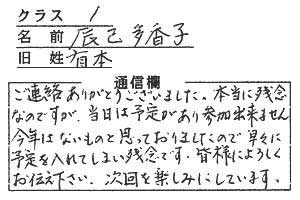 クラス 1
名前 辰己多香子
旧姓 有本
通信欄
ご連絡ありがとうございました。本当に残念
なのですが、当日は予定があり参加出来ません
今年はないものと思っておりましたので早々に
予定を入れてしまい残念です。皆様によろしく
お伝え下さい。次回を楽しみにしています。